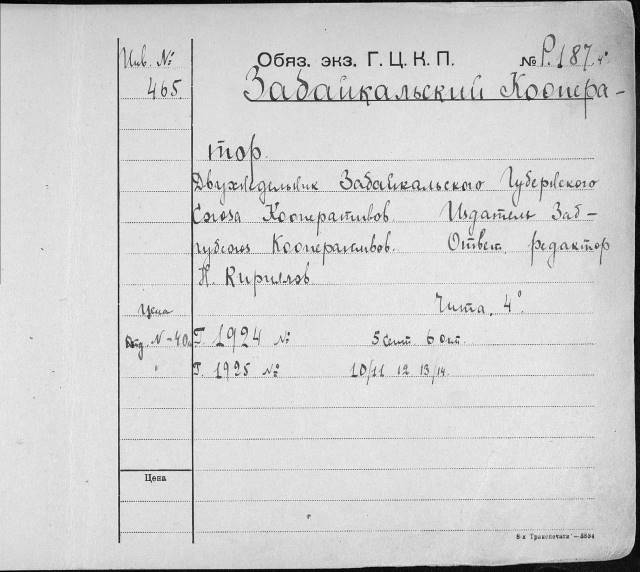 Инв. №
465.
Обяз. экз. Г. Ц. К. П.
№ Р.187. 4°
Забайкальский Коопера-
тор.
Двухнедельник Забайкальского Губернского
Союза Кооперативов. Издатель Заб-
губсоюз Кооперативов. Ответ. редактор
Н. Кириллов
Чита. 4°
Цена
Отд. N-40к
Г. 1924 № 5 сент 6 окт.
" Г. 1925 № 10/11 12 13/14.
Цена
8-я Транспечати —3884